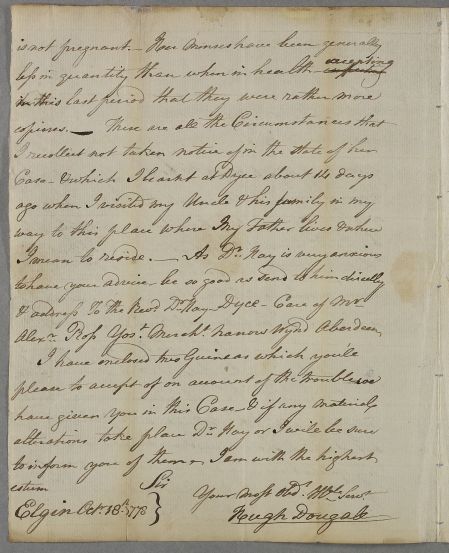 is not pregnant. – Her menses have been generally
less in quantity than when in health – excepting
in this last period that they were rather more
copious. — These are all the Circumstances that
I recollect not taken notice of in the State of her
Case – & which I learnt at Dyce about 14 days
ago when I visited my Uncle & his family in my
way to this place where My Father lives & where
I mean to reside. — As Dr. Hay is very anxious
to have your advice – be so good as send to him directly
& address To the Revd Dr. Hay – Dyce – Care of Mr
Alexr. Ross Mercht. narrow Wynd Aberdeen
I have enclosed two Guineas which you'le
please to accept of on account of the trouble we
have given you in this Case – & if any material
alterations take place Dr. Hay or I will be sure
to inform you of them – I am with the highest
esteem Sir
Your most Obt. Hble Servt
Elgin Oct. 18th 1778 } Hugh Dougall